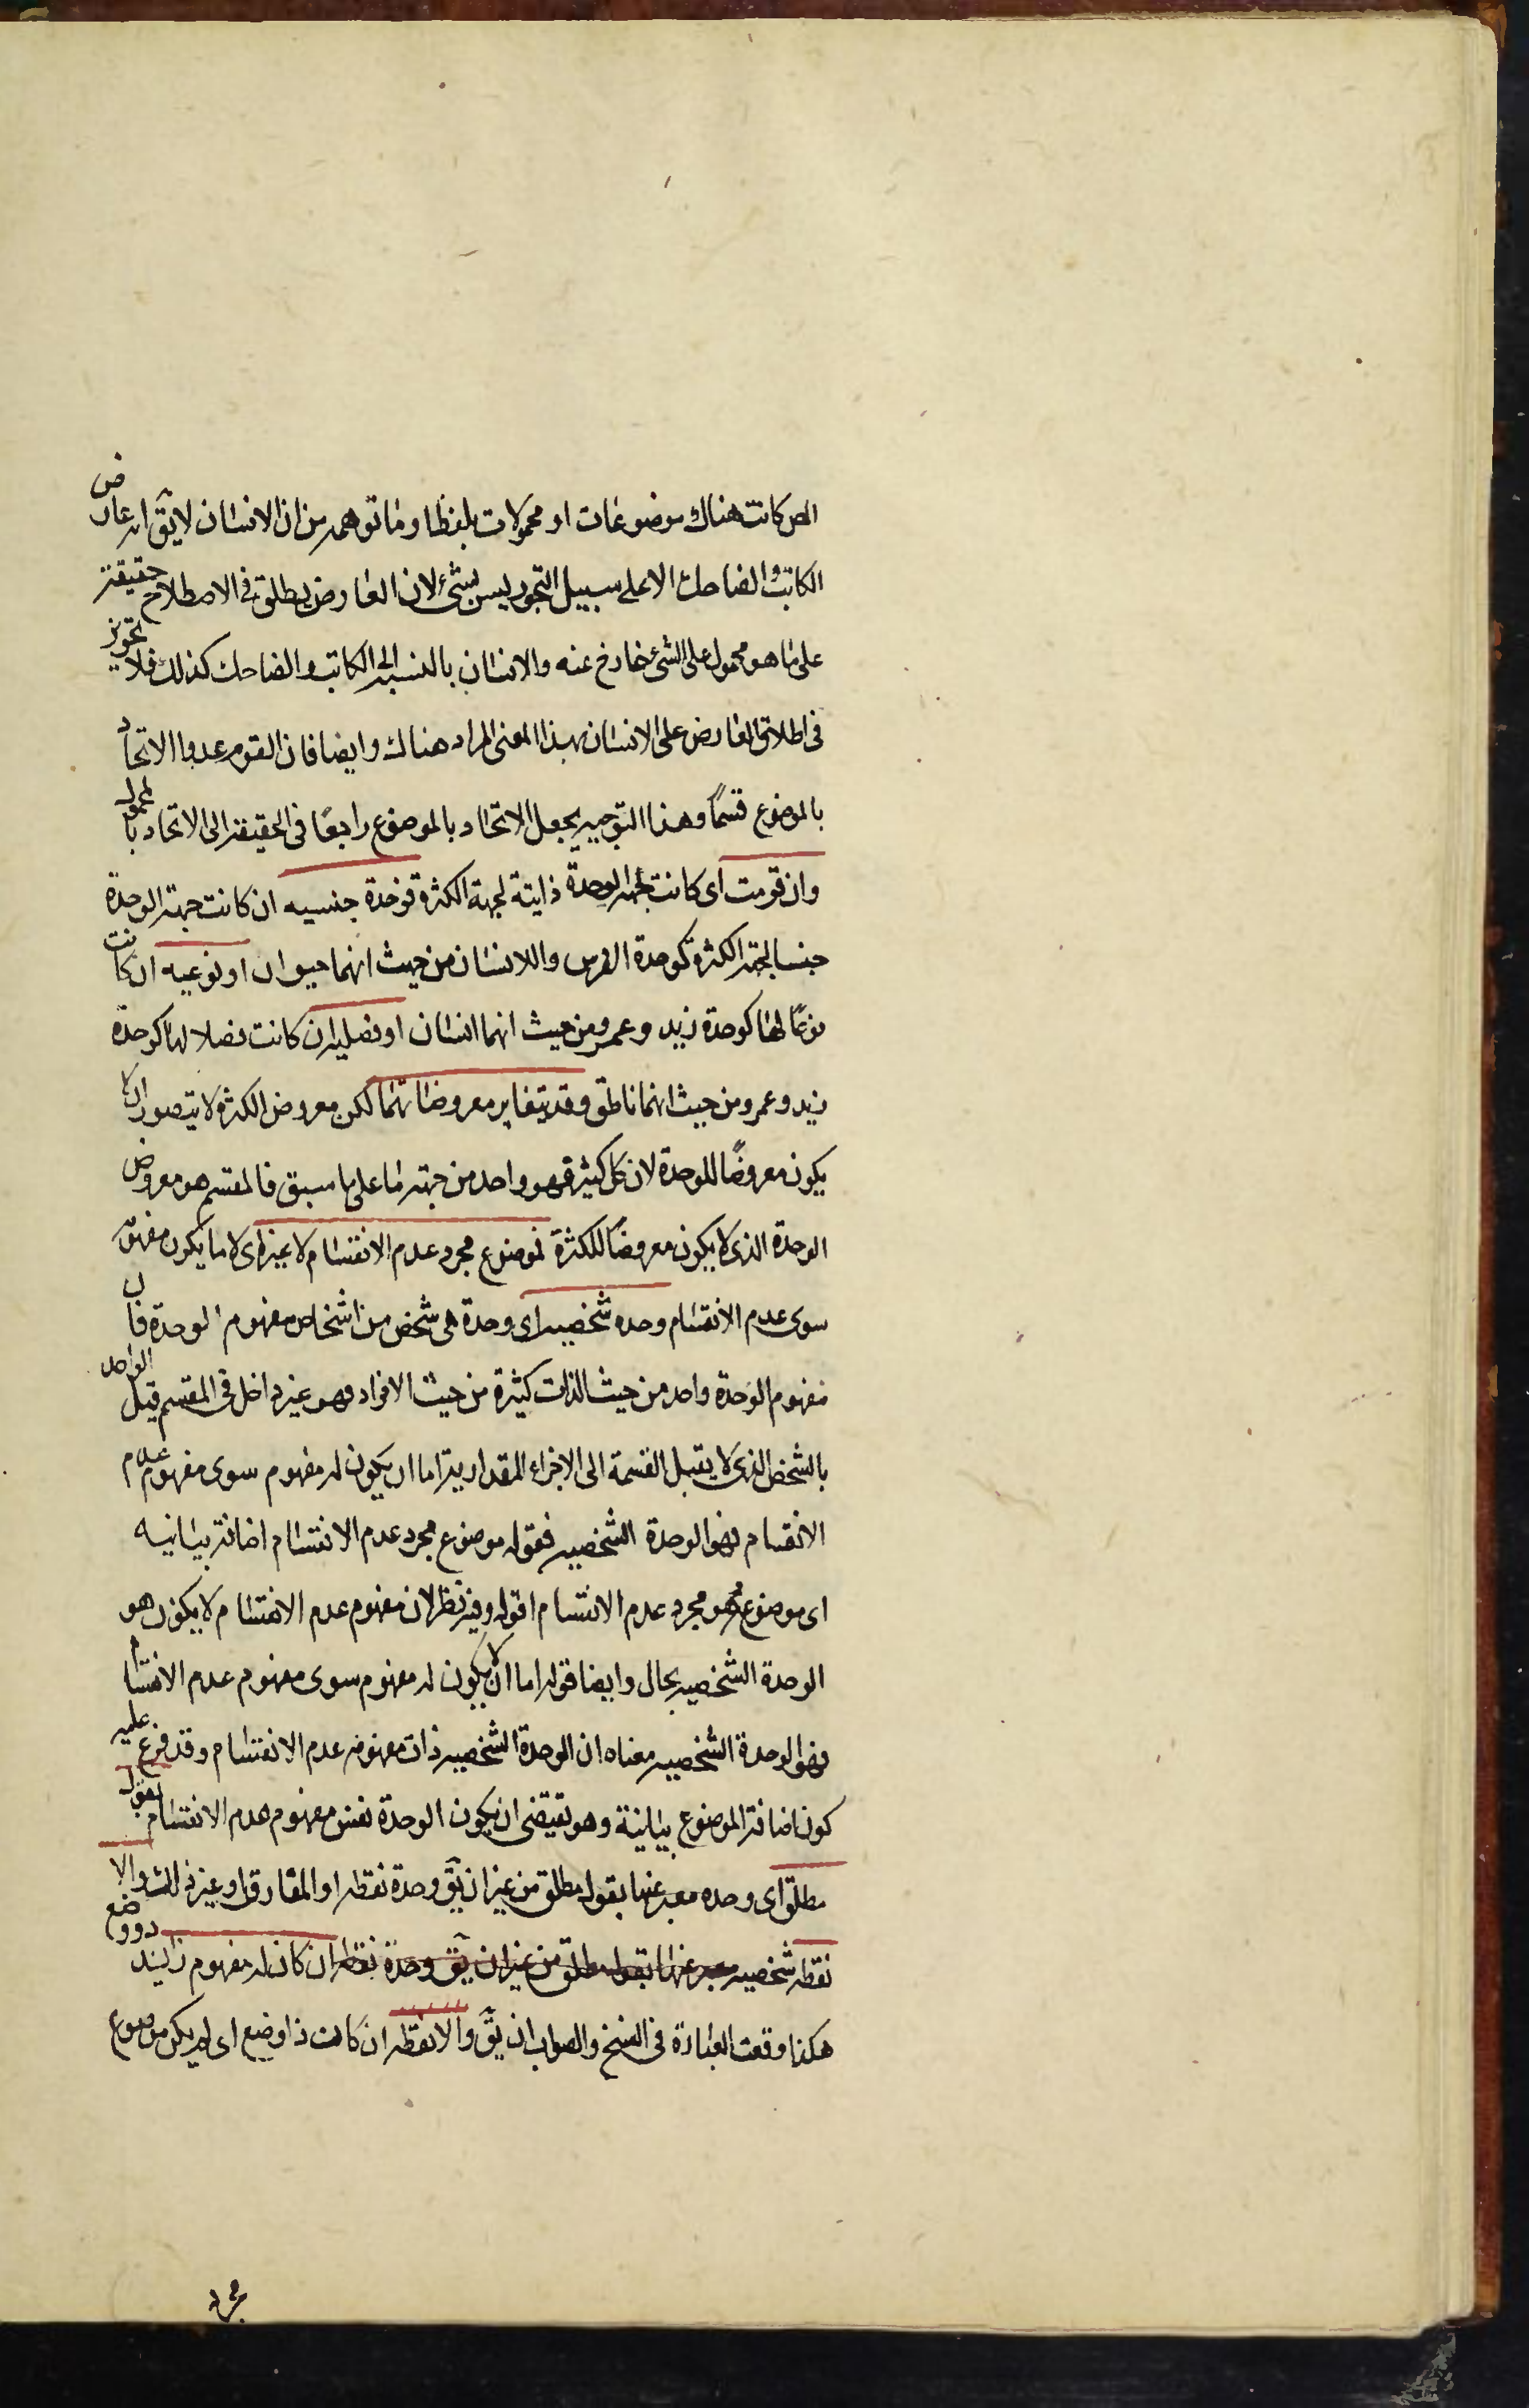 المص كانت هناك موضوعات او محمولات بلفظ او وما توهمه من ان الانسان لا يقٓ انه عارض
الكاتب والضاحك الا على سبيل التجوز ليس بشئ لان العارض يطلق فى الاصطلاح حقيقة
على ما هو محمول على الشئ خارج عنه والانسان بالنسبة الى الكاتب والضاحك كذلك فلا تجوز
فى اطلاق العارض على الانسان بهذا المعنى المراد هناك وايضا فان القوم عدوا الاتحاد
بالموضوع قسماً وهذا التوجيه يجعل الاتحاد بالموضوع راجعًا فى الحقيقة الى الاتحاد بالمحمول
وان قومت اى كانت جهة الوحدة ذاتية لجهة الكثرة فوحدة جنسيه ان كانت جهة الوحدة
جنسا لجهة الكثرة كوحدة الفرس والانسان من حيث انهما حيوان او نوعيه ان كانت
نوعًا لها كوحدة زيد وعمرو من حيث انهما انسان او فصليه ان كانت فصلا لها كوحدة
زيد وعمرو من حيث انهما ناطق وقد يتغاير معروضاتهما لكن معروض الكثرة لا يتصور ان لا
يكون معروضًا للوحدة لان كل كثير فهو واحد من جهة ما على ما سبق فالمقسم هو معروض
الوحدة الذى لا يكون معروضًا للكثرة فموضوع مجرد عدم الانقسام لا غير اى لا ما يكون مفهومه
سوى عدم الانقسام وحده شخصيه اى وحدة هى شخص من اشخاص مفهوم الوحدة فان
مفهوم الوحدة واحد من حيث الذات كثيرة من حيث الافراد فهو غير داخل فى المقسم قيل الواحد
بالشخص الذى لا يقبل القسمة الى الاجزاء المقدارية اما ان يكون له مفهوم سوى مفهوم عدم
الانقسام فهو الوحدة الشخصيه فقوله موضوع مجرد عدم الانقسام اضافة بيانيه
اى موضوع هو مجرد عدم الانقسام اقول وفيه نظر لان مفهوم عدم الانقسام لا يكون هو
الوحدة الشخصيه بحال وايضا قوله اما ان لا يكون له مفهوم سوى مفهوم عدم الانقسام
فهو الوحدة الشخصيه معناه ان الوحدة الشخصيه ذات مفهومه عدم الانقسام وقد فرع عليه
كون اضافة الموضوع بيانية وهو يقتضى ان يكون الوحدة نفس مفهوم عدم الانقسام بقول
مطلق اى وحده معبر عنها بقول مطلق من غير ان يقٓ وحدة نقطه او المفارق او غير ذلك والا
نقطه شخصيه معبر عنها بقول مطلق من غير ان يقٓ وحدة نقطه ان كان له مفهوم زايد ذو وضع
هكذا وقعت العبارة فى النسخ والصواب ان يقٓ والا نقطه ان كانت ذا وضع اى لم يكن موضوع
مجرد